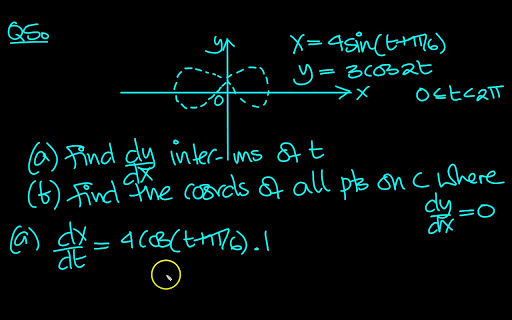 Q5.
y
x = 4sin(t+π/6)
y = 3cos2t
O
x
0 ≤ t < 2π
(a) Find dy/dx interms of t
(b) Find the coords of all pts on C where dy/dx = 0
(a) dx/dt = 4cos(t+π/6).1